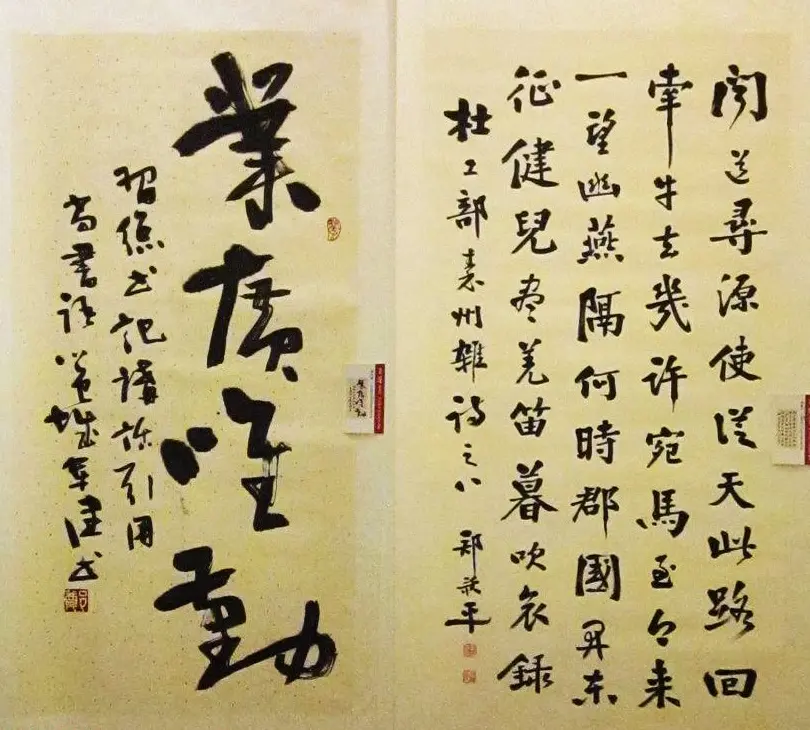 聞道尋源使從天此路回
牽牛去幾許宛馬至今来
一望幽燕隔何時郡國開东
征健兒盡羌笛暮吹哀錄
杜工部秦州雜詩之八 郑平
業廣唯勤
習總书記講話引用
尚書語书